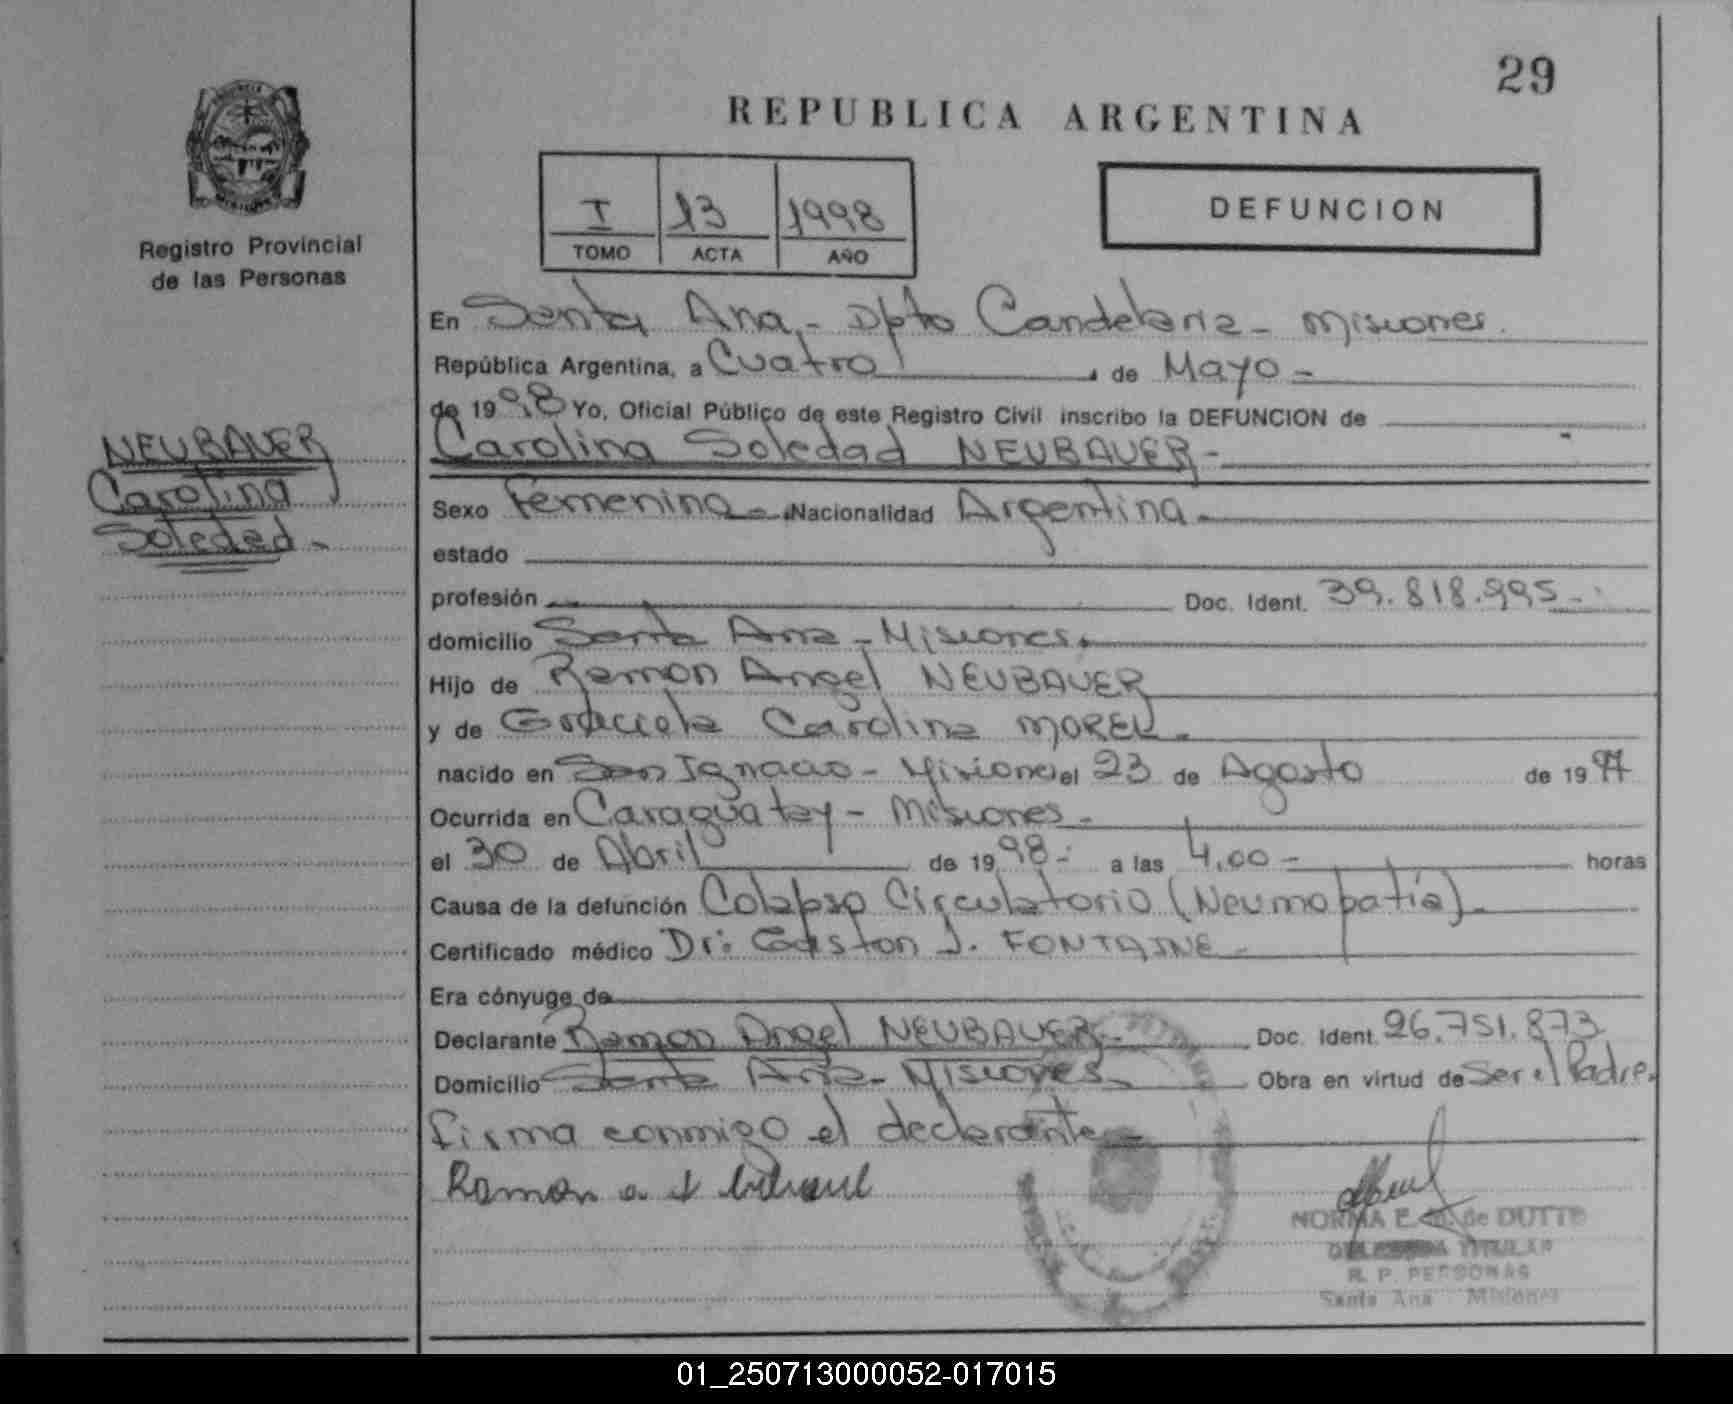 29
REPUBLICA ARGENTINA
Registro Provincial
de las Personas
I 13 1998
TOMO ACTA AÑO
DEFUNCION
En Santa Ana - Dpto Candelaria - Misiones.
República Argentina, a Cuatro de Mayo -
de 1998 Yo, Oficial Público de este Registro Civil inscribo la DEFUNCION de
NEUBAUER
Carolina
Soledad.
Carolina Soledad NEUBAUER -
Sexo Femenina - Nacionalidad Argentina -
estado
profesión Doc. Ident. 39.818.995 -
domicilio Santa Ana - Misiones.
Hijo de Ramon Angel NEUBAUER
y de Graciela Carolina MOREL -
nacido en San Ignacio - Misiones el 23 de Agosto de 1997
Ocurrida en Caraguatay - Misiones -
el 30 de Abril de 1998 - a las 4,00 - horas
Causa de la defunción Colapso Circulatorio (Neumopatía).
Certificado médico Dr: Gaston J. FONTAINE -
Era cónyuge de
Declarante Ramon Angel NEUBAUER - Doc. Ident. 26.751.873
Domicilio Santa Ana - Misiones - Obra en virtud de Ser el Padre.
firma conmigo el declarante -
Ramon a
NORMA E. de DUTTO
TITULAR
R. P. PERSONAS
Santa Ana Misiones
01_250713000052-017015